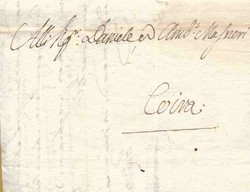 Alli Sig.ri Daniele ed Ant.o Massieri
Coira